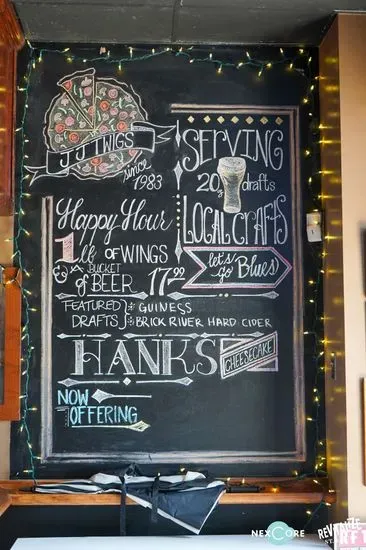 JJ TWIGS
since
1983
SERVING
20 drafts
of
LOCAL CRAFTS
let's
go Blues
Happy Hour
1 lb OF WINGS
& A BUCKET
of BEER 17.99
FEATURED
DRAFTS
GUINESS
BRICK RIVER HARD CIDER
HANKS
CHEESECAKE
NOW
OFFERING
NEXCORE
REVITALIZE